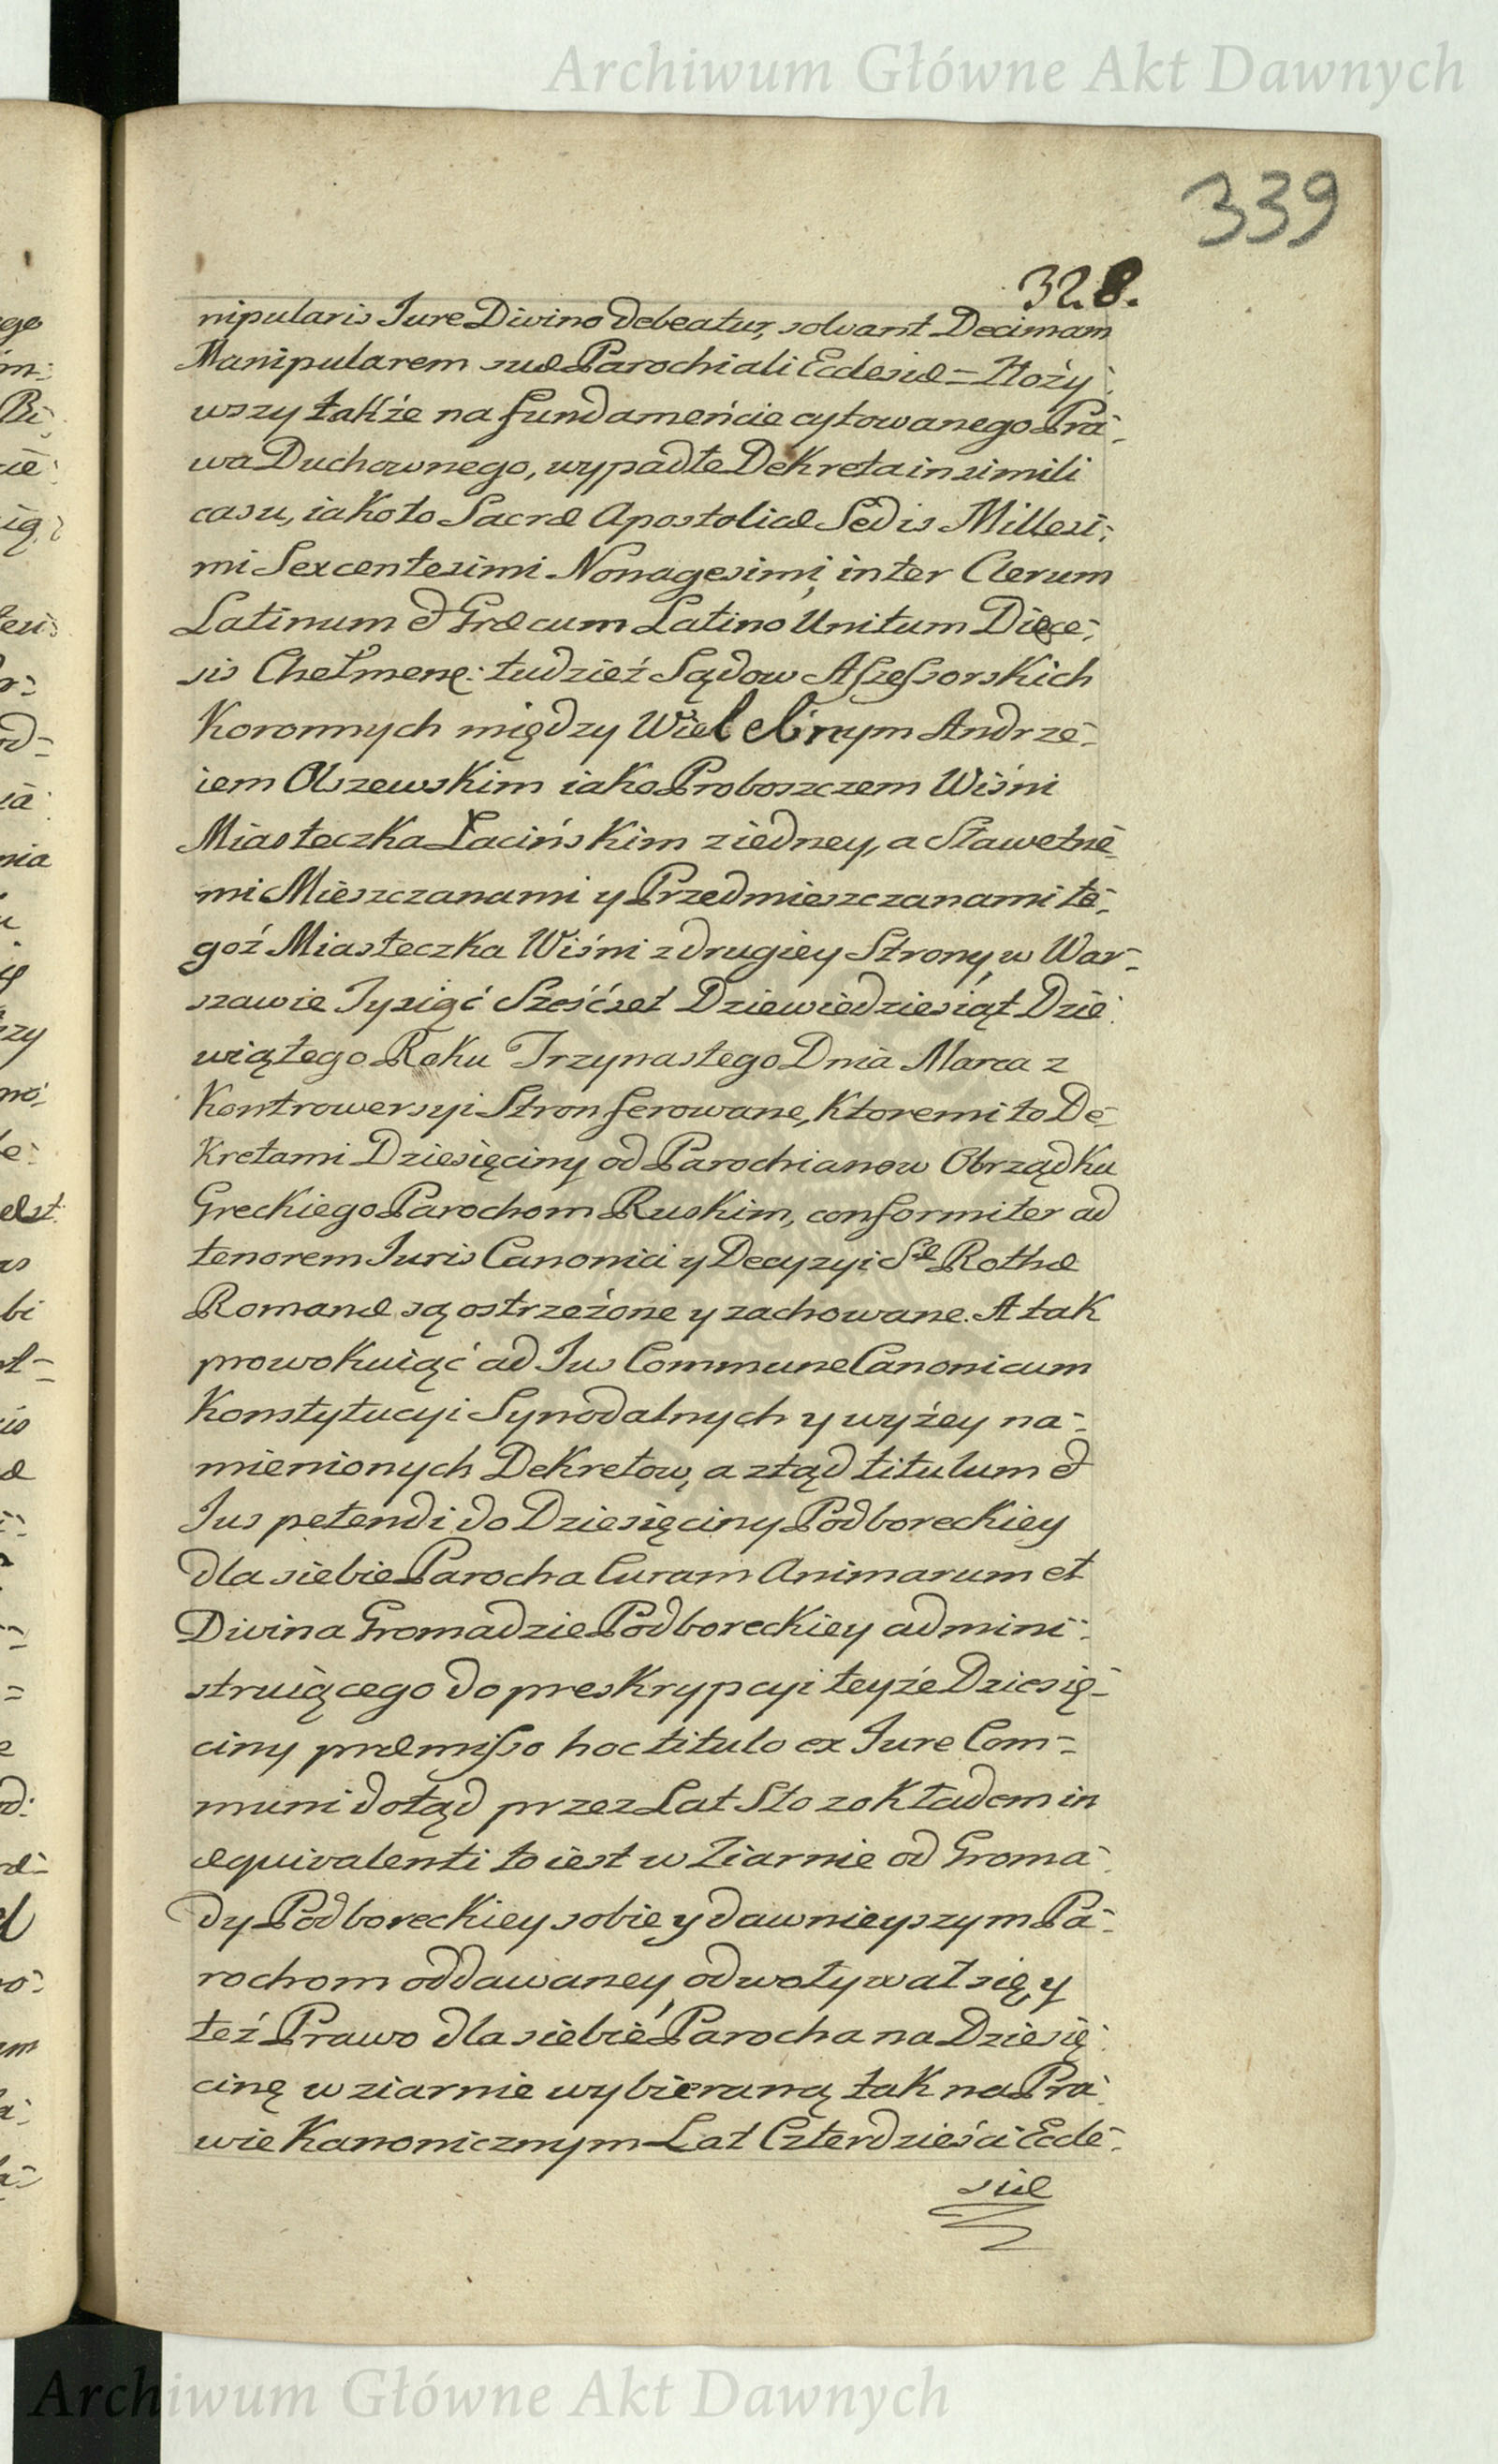 Archiwum Główne Akt Dawnych
339
328.
nipularis Jure Divino debeatur, solvant Decimam
Manipularem suæ Parochiali Ecclesiæ = Złoży:
wszy także na fundamencie cytowanego Pra-
wa Duchownego, wypadłe Dekreta in simili
casu, iako to Sacræ Apostolicæ Sedis Millesi-
mi Sexcentesimi Nonagesimi, inter Clerum
Latinum & Græcum Latino Unitum Diæce-
sis Chełmenę: tudzież Sądow Assessorskich
Koronnych między Wielebnym Andrze-
iem Olszewskim iako Proboszczem Wiśni
Miasteczka Łacińskim z iedney, a Sławetne-
mi Mieszczanami y Przedmieszczanami te-
goż Miasteczka Wiśni z drugiey Strony, w War-
szawie Tysiąć Sześćset Dziewiedziesiąt Dzie-
wiątego Roku Trzynastego Dnia Marca z
Kontrowersyi Stron ferowane, Ktoremi to De-
kretami Dziesięciny od Parochianow Obrządku
Greckiego Parochom Ruskim, conformiter ad
tenorem Juris Canonici y Decyzyi Sæ Rothæ
Romanæ są ostrzeżone y zachowane. A tak
prowokuiąć ad Jus Commune Canonicum
Konstytucyi Synodalnych y wyżey na-
mienionych Dekretow, a ztąd titulum &
Jus petendi do Dziesięciny Podboreckiey
dla siebie Parocha Curam Animarum et
Divina Gromadzie Podboreckiey admini-
struiącego do preskrypcyi teyże Dziesię-
ciny præmisso hoc titulo ex Jure Com-
muni dotąd przez Lat Sto zokładem in
æquivalenti to iest w Ziarnie od Groma-
dy Podboreckiey sobie y dawnieyszym Pa-
rochom oddawaney, odwoływał się, y
też Prawo dla siebie Parocha na Dziesię-
cinę w ziarnie wybieraną tak na Pra-
wie Kanonicznym Lat Czterdzieści Eccle-
siæ
Archiwum Główne Akt Dawnych